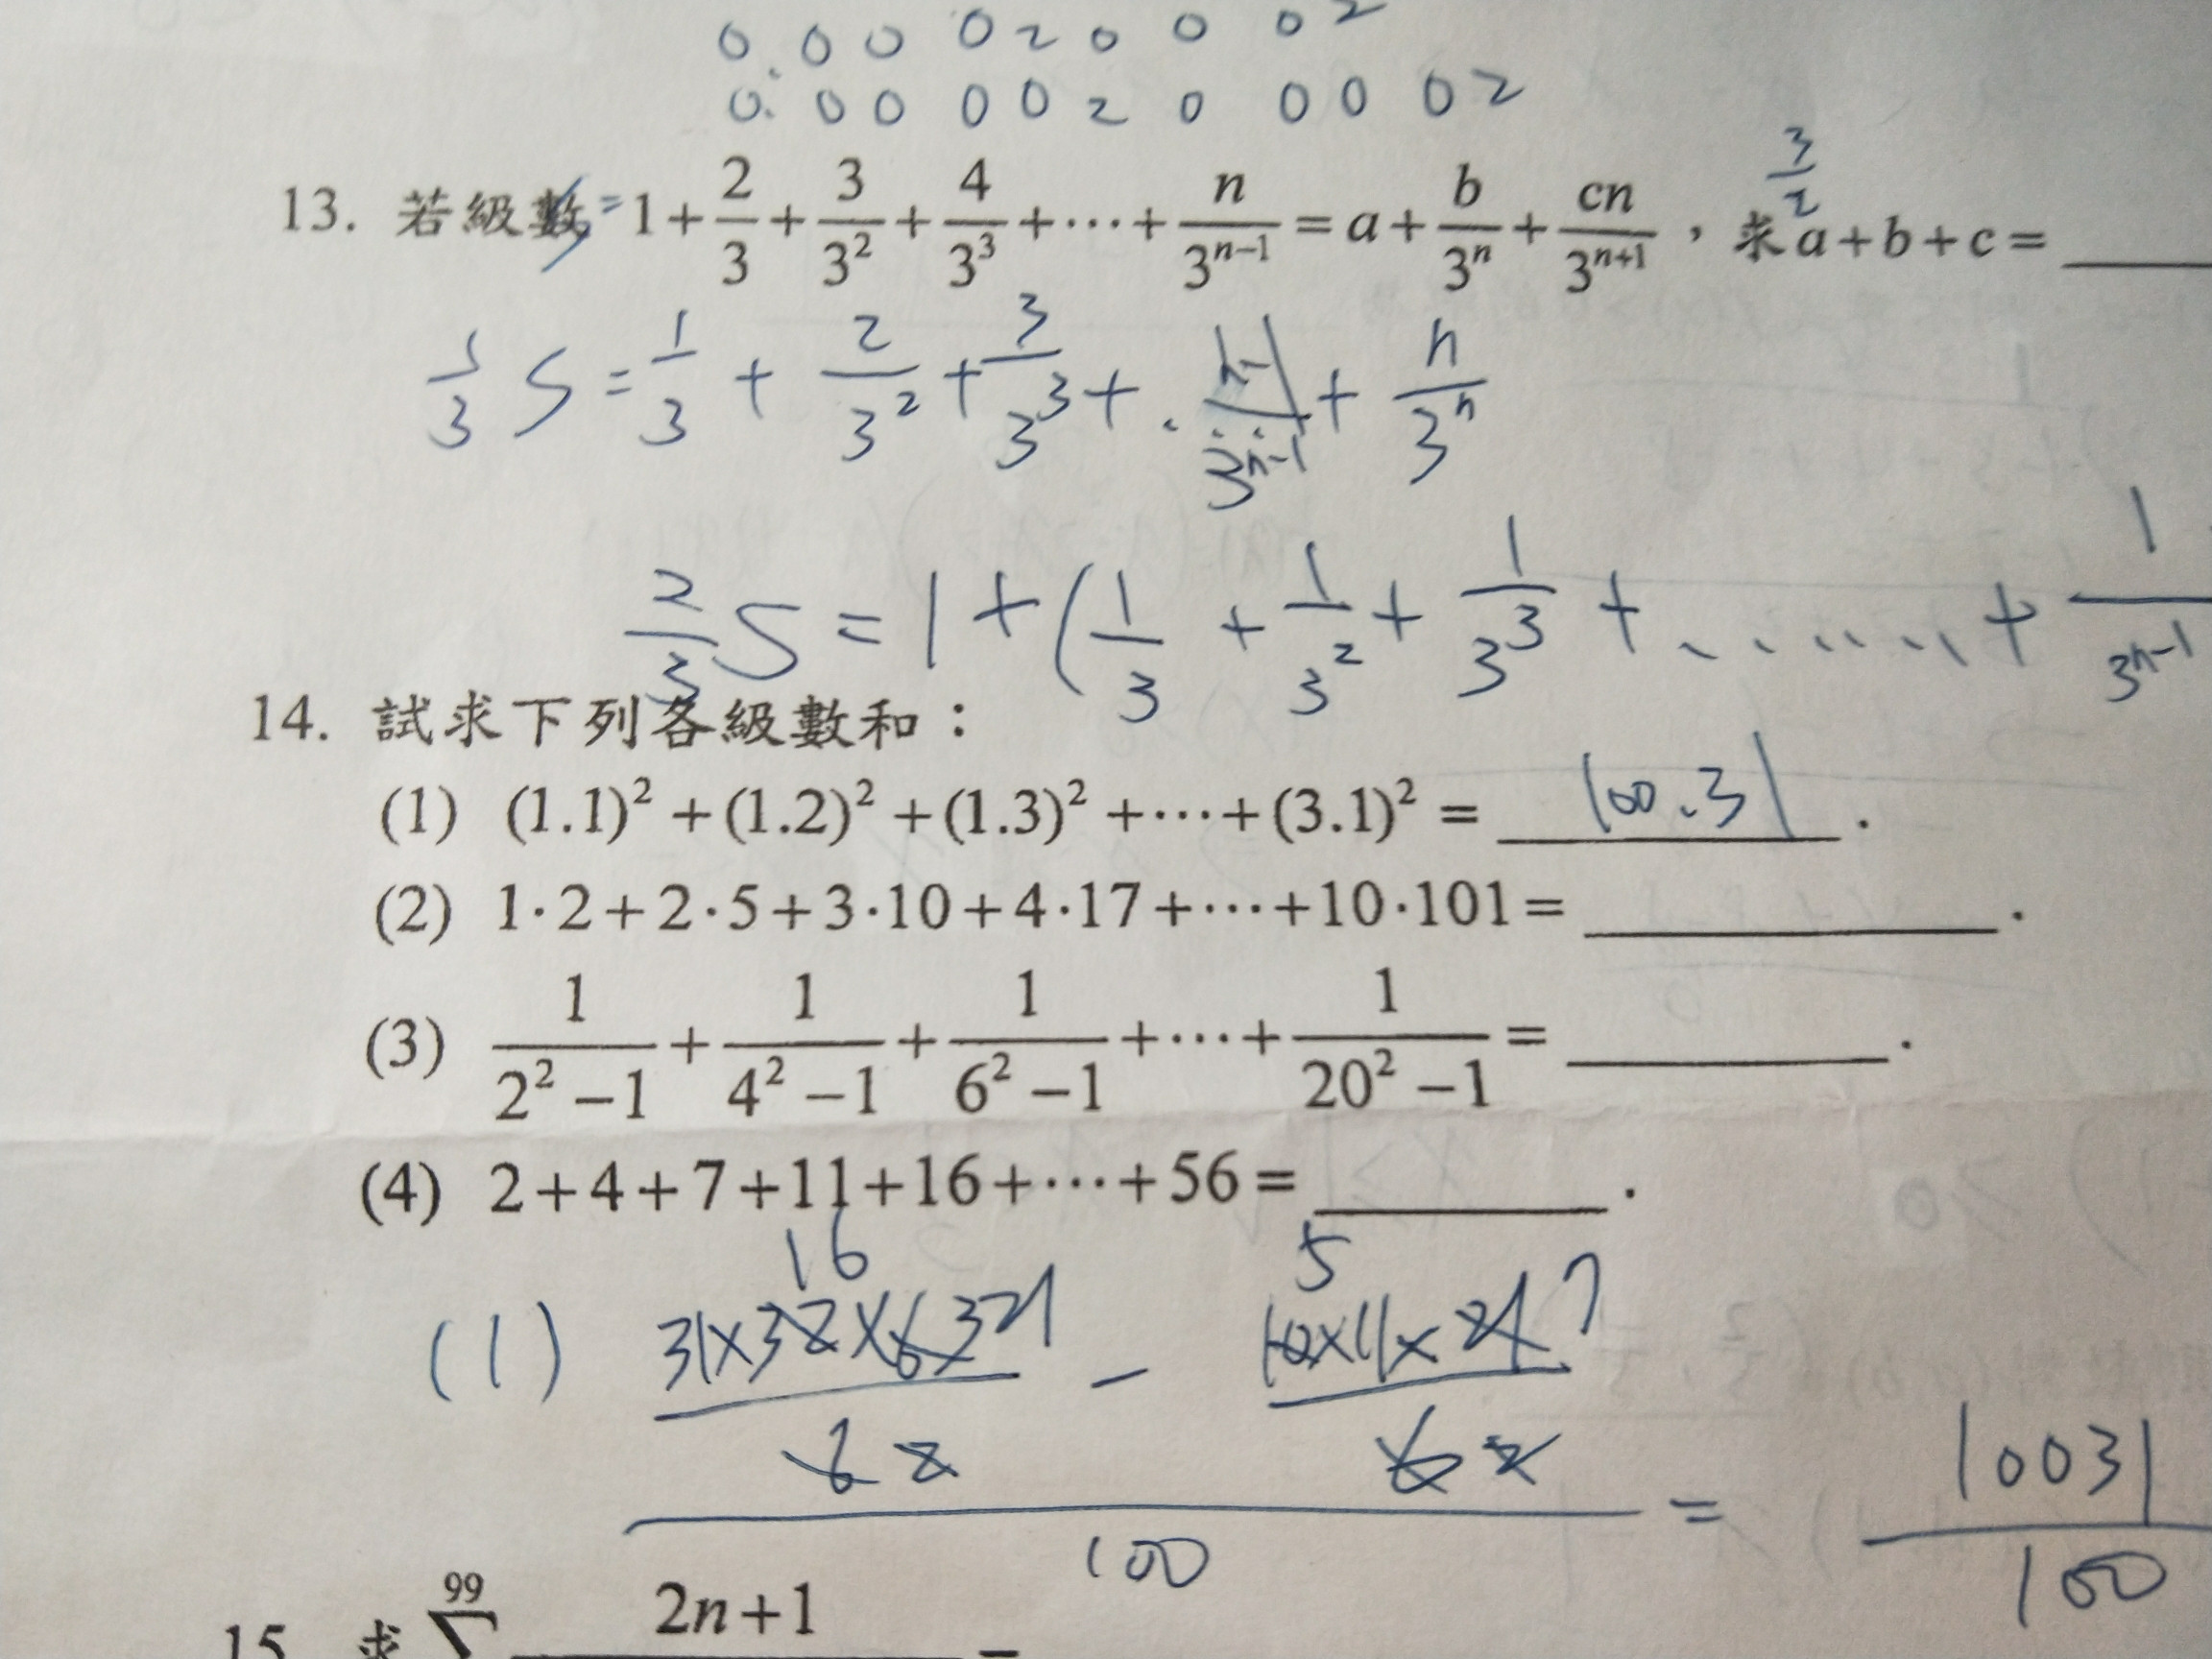 0.00020002
0.0000200002
13. 若級數 S = 1 + 2/3 + 3/3² + 4/3³ + ⋯ + n/3ⁿ⁻¹ = a + b/3ⁿ + cn/3ⁿ⁺¹，求 a + b + c = ____
3/2
1/3 S = 1/3 + 2/3² + 3/3³ + ⋯ + n/3ⁿ
2/3 S = 1 + (1/3 + 1/3² + 1/3³ + ⋯⋯ + 1/3ⁿ⁻¹
14. 試求下列各級數和：
(1) (1.1)² + (1.2)² + (1.3)² + ⋯ + (3.1)² = 100.31 .
(2) 1·2 + 2·5 + 3·10 + 4·17 + ⋯ + 10·101 = ____ .
(3) 1/(2² − 1) + 1/(4² − 1) + 1/(6² − 1) + ⋯ + 1/(20² − 1) = ____ .
(4) 2 + 4 + 7 + 11 + 16 + ⋯ + 56 = ____ .
16 5
(1) 31×32×63 21 / 6 2 − 10×11×21 7 / 6 2
100
= 10031/100
15. 求 99 Σ 2n+1 =